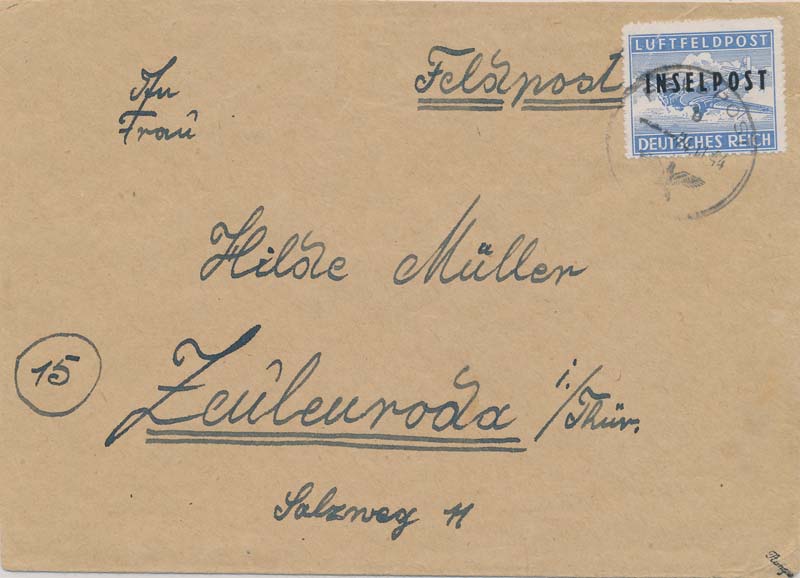 Feldpost
LUFTFELDPOST
INSELPOST
DEUTSCHES REICH
An
Frau
Hilde Müller
15
Zeulenroda i./Thür.
Salzweg 11